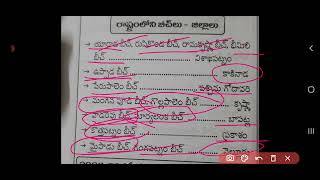 రాష్ట్రంలోని బీచ్‌లు - జిల్లాలు
→ యారాడ బీచ్, రుషికొండ బీచ్, రామకృష్ణా బీచ్, భీమిలి
బీచ్ ........ విశాఖపట్నం
→ ఉప్పాడ బీచ్ ........ కాకినాడ
→ పేరుపాలెం బీచ్ ........ పశ్చిమ గోదావరి
→ మంగినపూడి బీచ్, గొల్లపాలెం బీచ్ ........ కృష్ణా
→ వాడరేవు బీచ్, సూర్యలంక బీచ్ ........ బాపట్ల
→ కొత్తపట్నం బీచ్ ........ ప్రకాశం
→ మైపాడు బీచ్, బీచ్ ........ నెల్లూరు